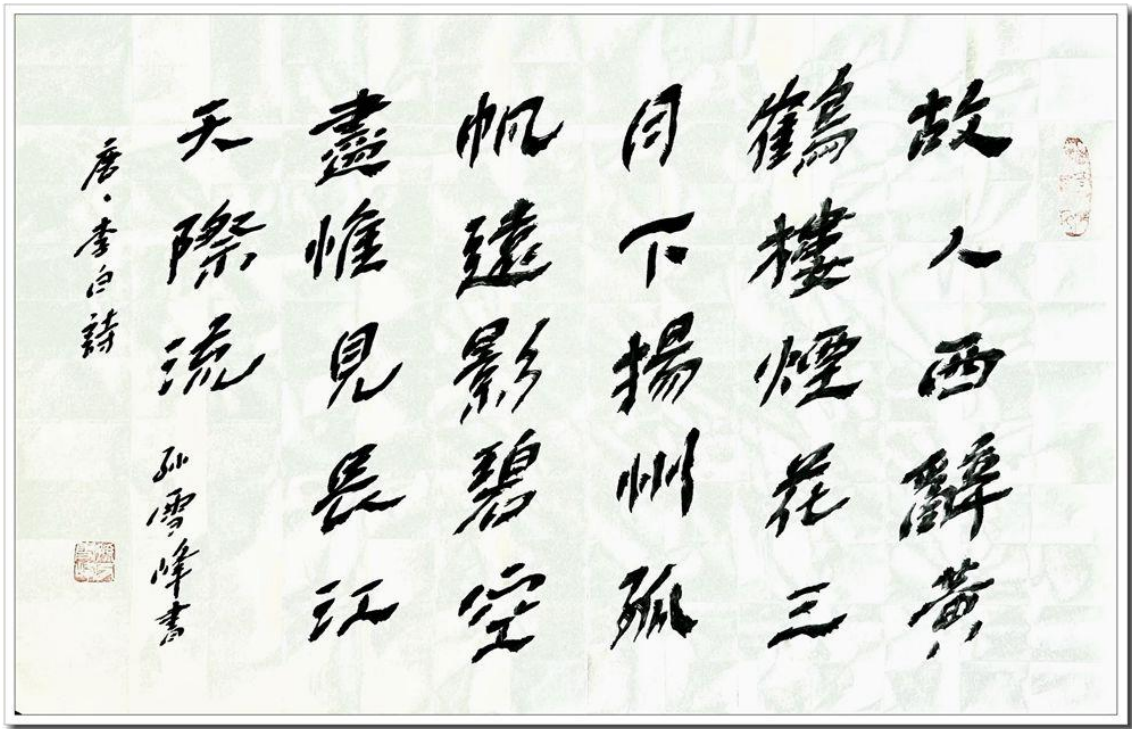 故人西辭黃
鶴樓煙花三
月下揚州孤
帆遠影碧空
盡惟見長江
天際流
孫雪峰書
唐·李白詩